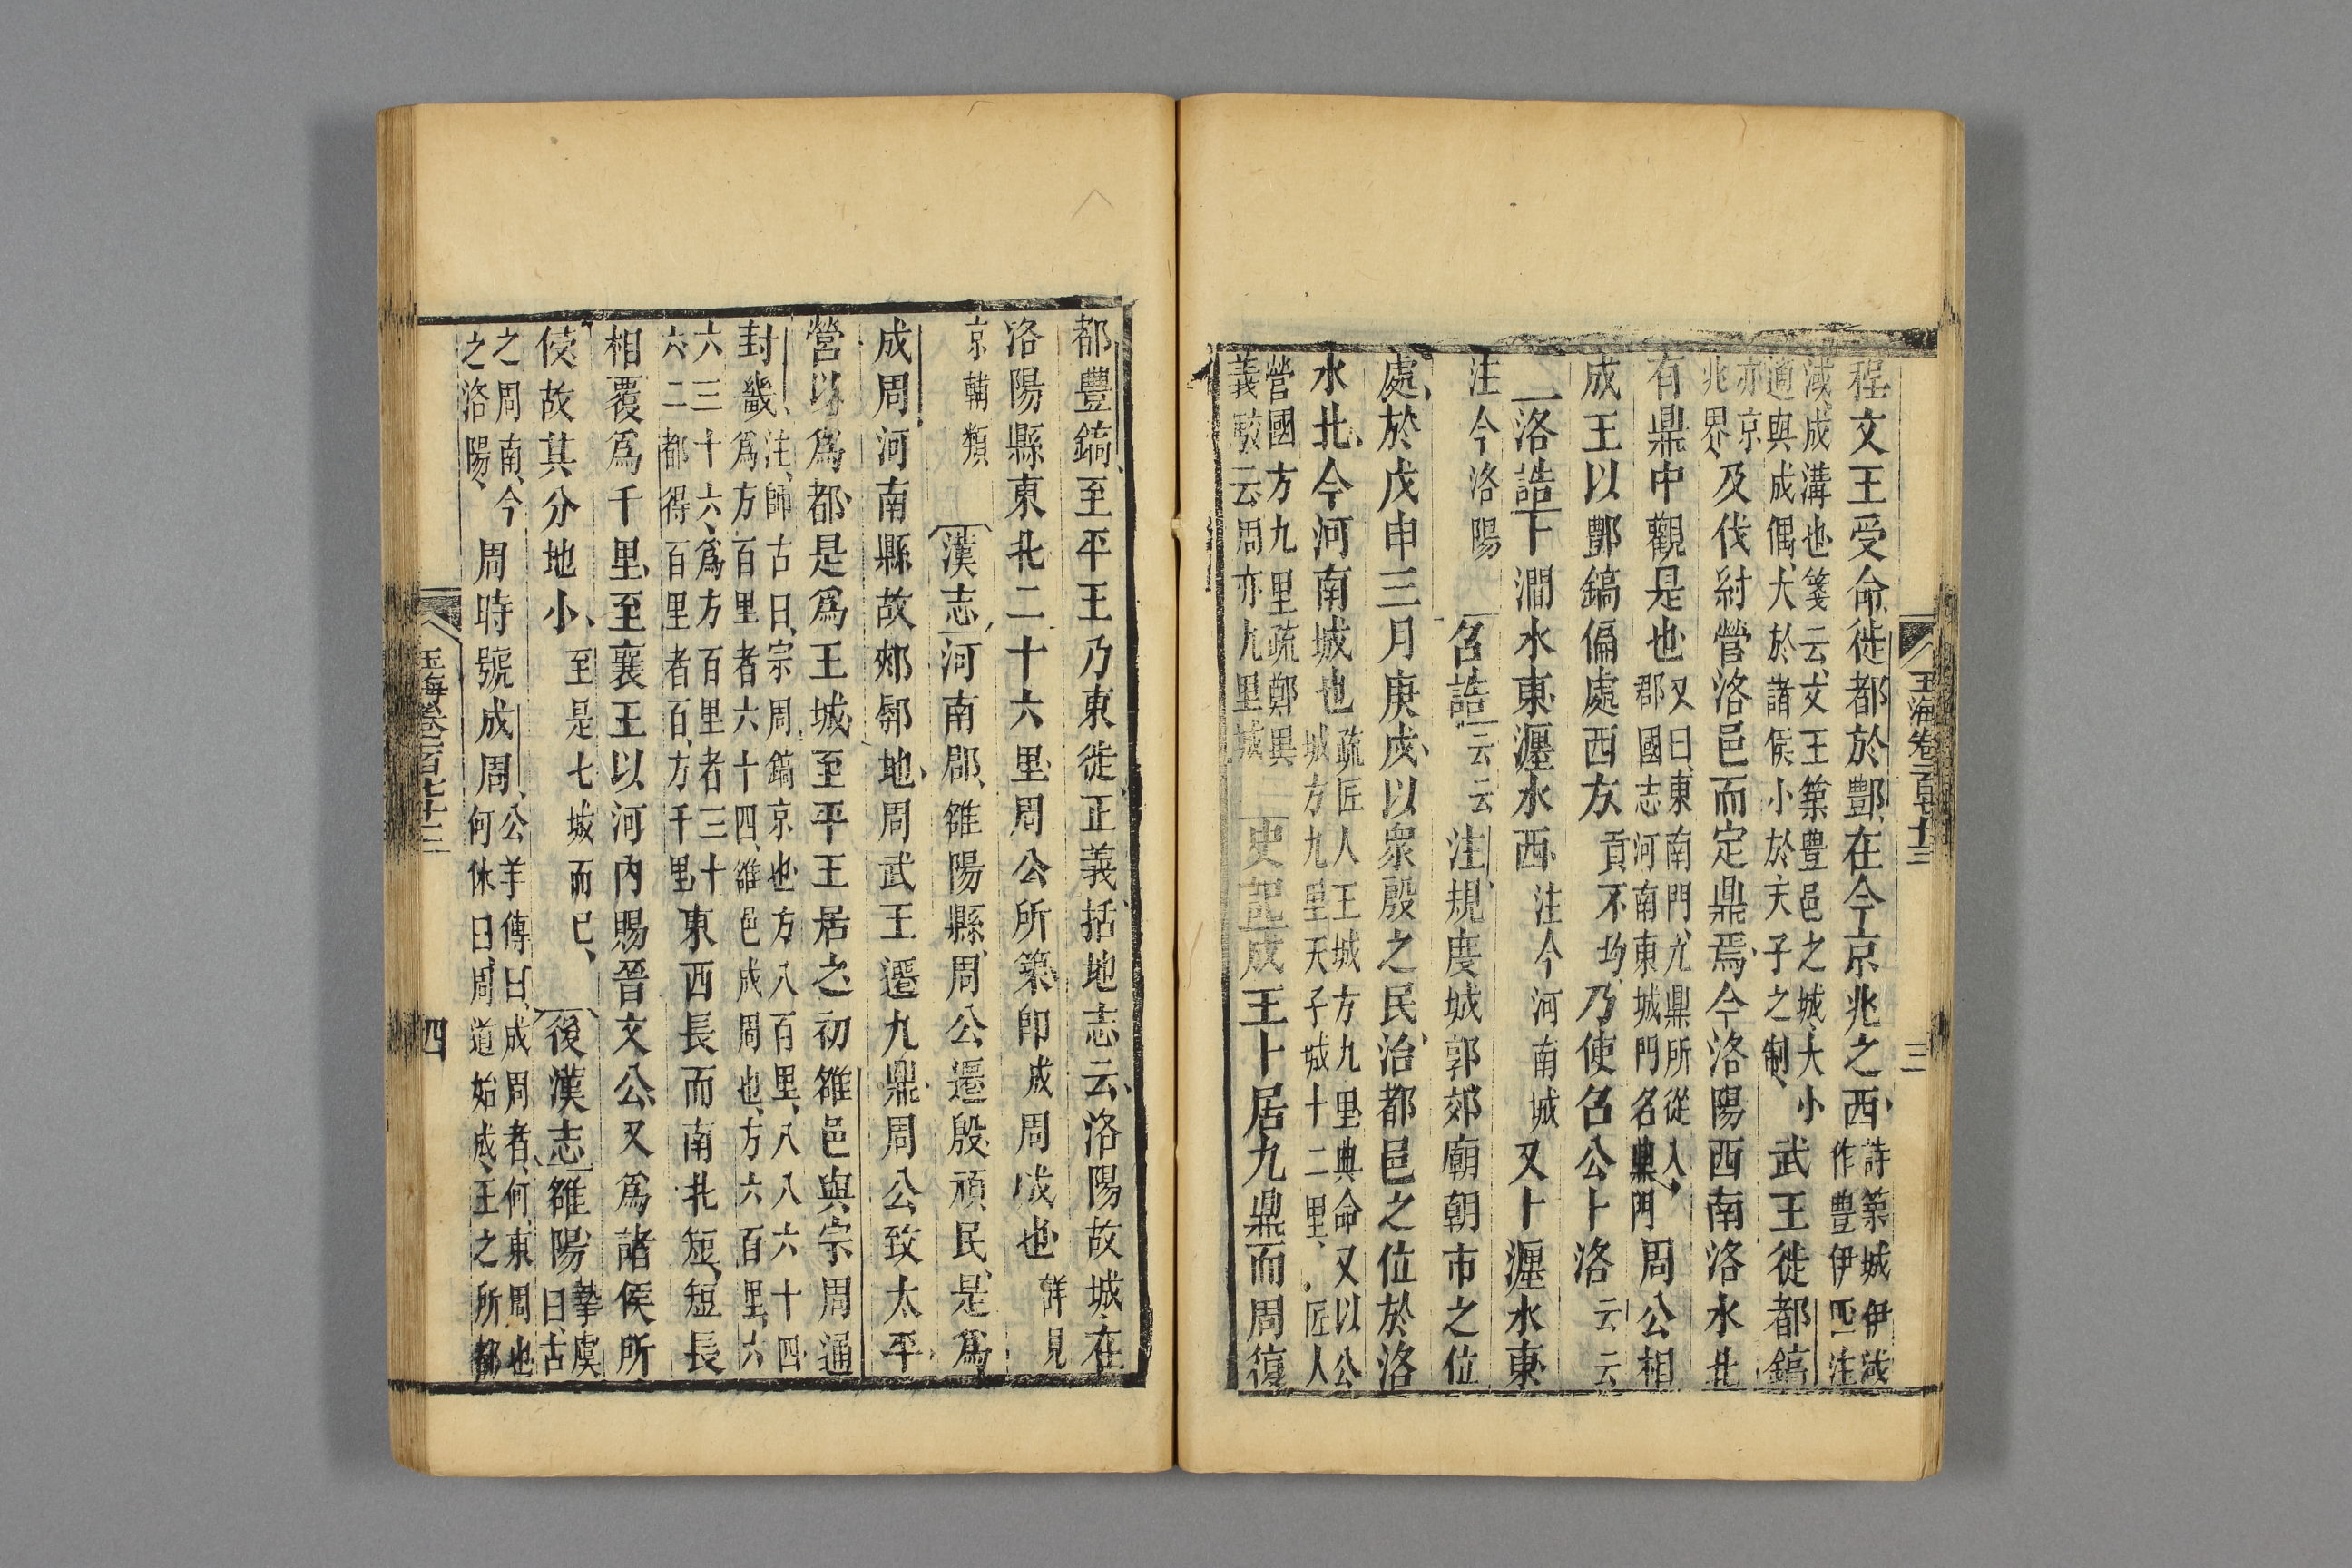 玉海卷一百七十三
三
程文王受命徙都於酆在今京兆之西詩築城伊淢
作豐伊匹注
淢成溝也箋云文王築豐邑之城大小
適與成偶大於諸侯小於天子之制武王徙都鎬
亦京
兆界及伐紂營洛邑而定鼎焉今洛陽西南洛水北
有鼎中觀是也又曰東南門九鼎所從入
郡國志河南東城門名鼎門周公相
成王以酆鎬偏處西方貢不均乃使召公卜洛云云
洛誥卜澗水東瀍水西注今河南城又卜瀍水東
注今洛陽召誥云云注規度城郭郊廟朝市之位
處於戊申三月庚戌以衆殷之民治都邑之位於洛
水北今河南城也疏匠人王城方九里典命又以公
城方九里天子城十二里匠人
營國方九里疏鄭異
義駮云周亦九里城史記成王卜居九鼎而周復
都豐鎬至平王乃東徙正義括地志云洛陽故城在
洛陽縣東北二十六里周公所築即成周城也詳見
京輔類漢志河南郡雒陽縣周公遷殷頑民是爲
成周河南縣故郟鄏地周武王遷九鼎周公致太平
營以爲都是爲王城至平王居之初雒邑與宗周通
封畿注師古曰宗周鎬京也方八百里八八六十四
爲方百里者六十四雒邑成周也方六百里六
六三十六爲方百里者三十
六二都得百里者百方千里東西長而南北短短長
相覆爲千里至襄王以河內賜晉文公又爲諸侯所
侵故其分地小至是七城而已後漢志雒陽摯虞
曰古
之周南今
之洛陽周時號成周公羊傳曰成周者何東周也
何休曰周道始成王之所都
玉海卷一百七十三
四